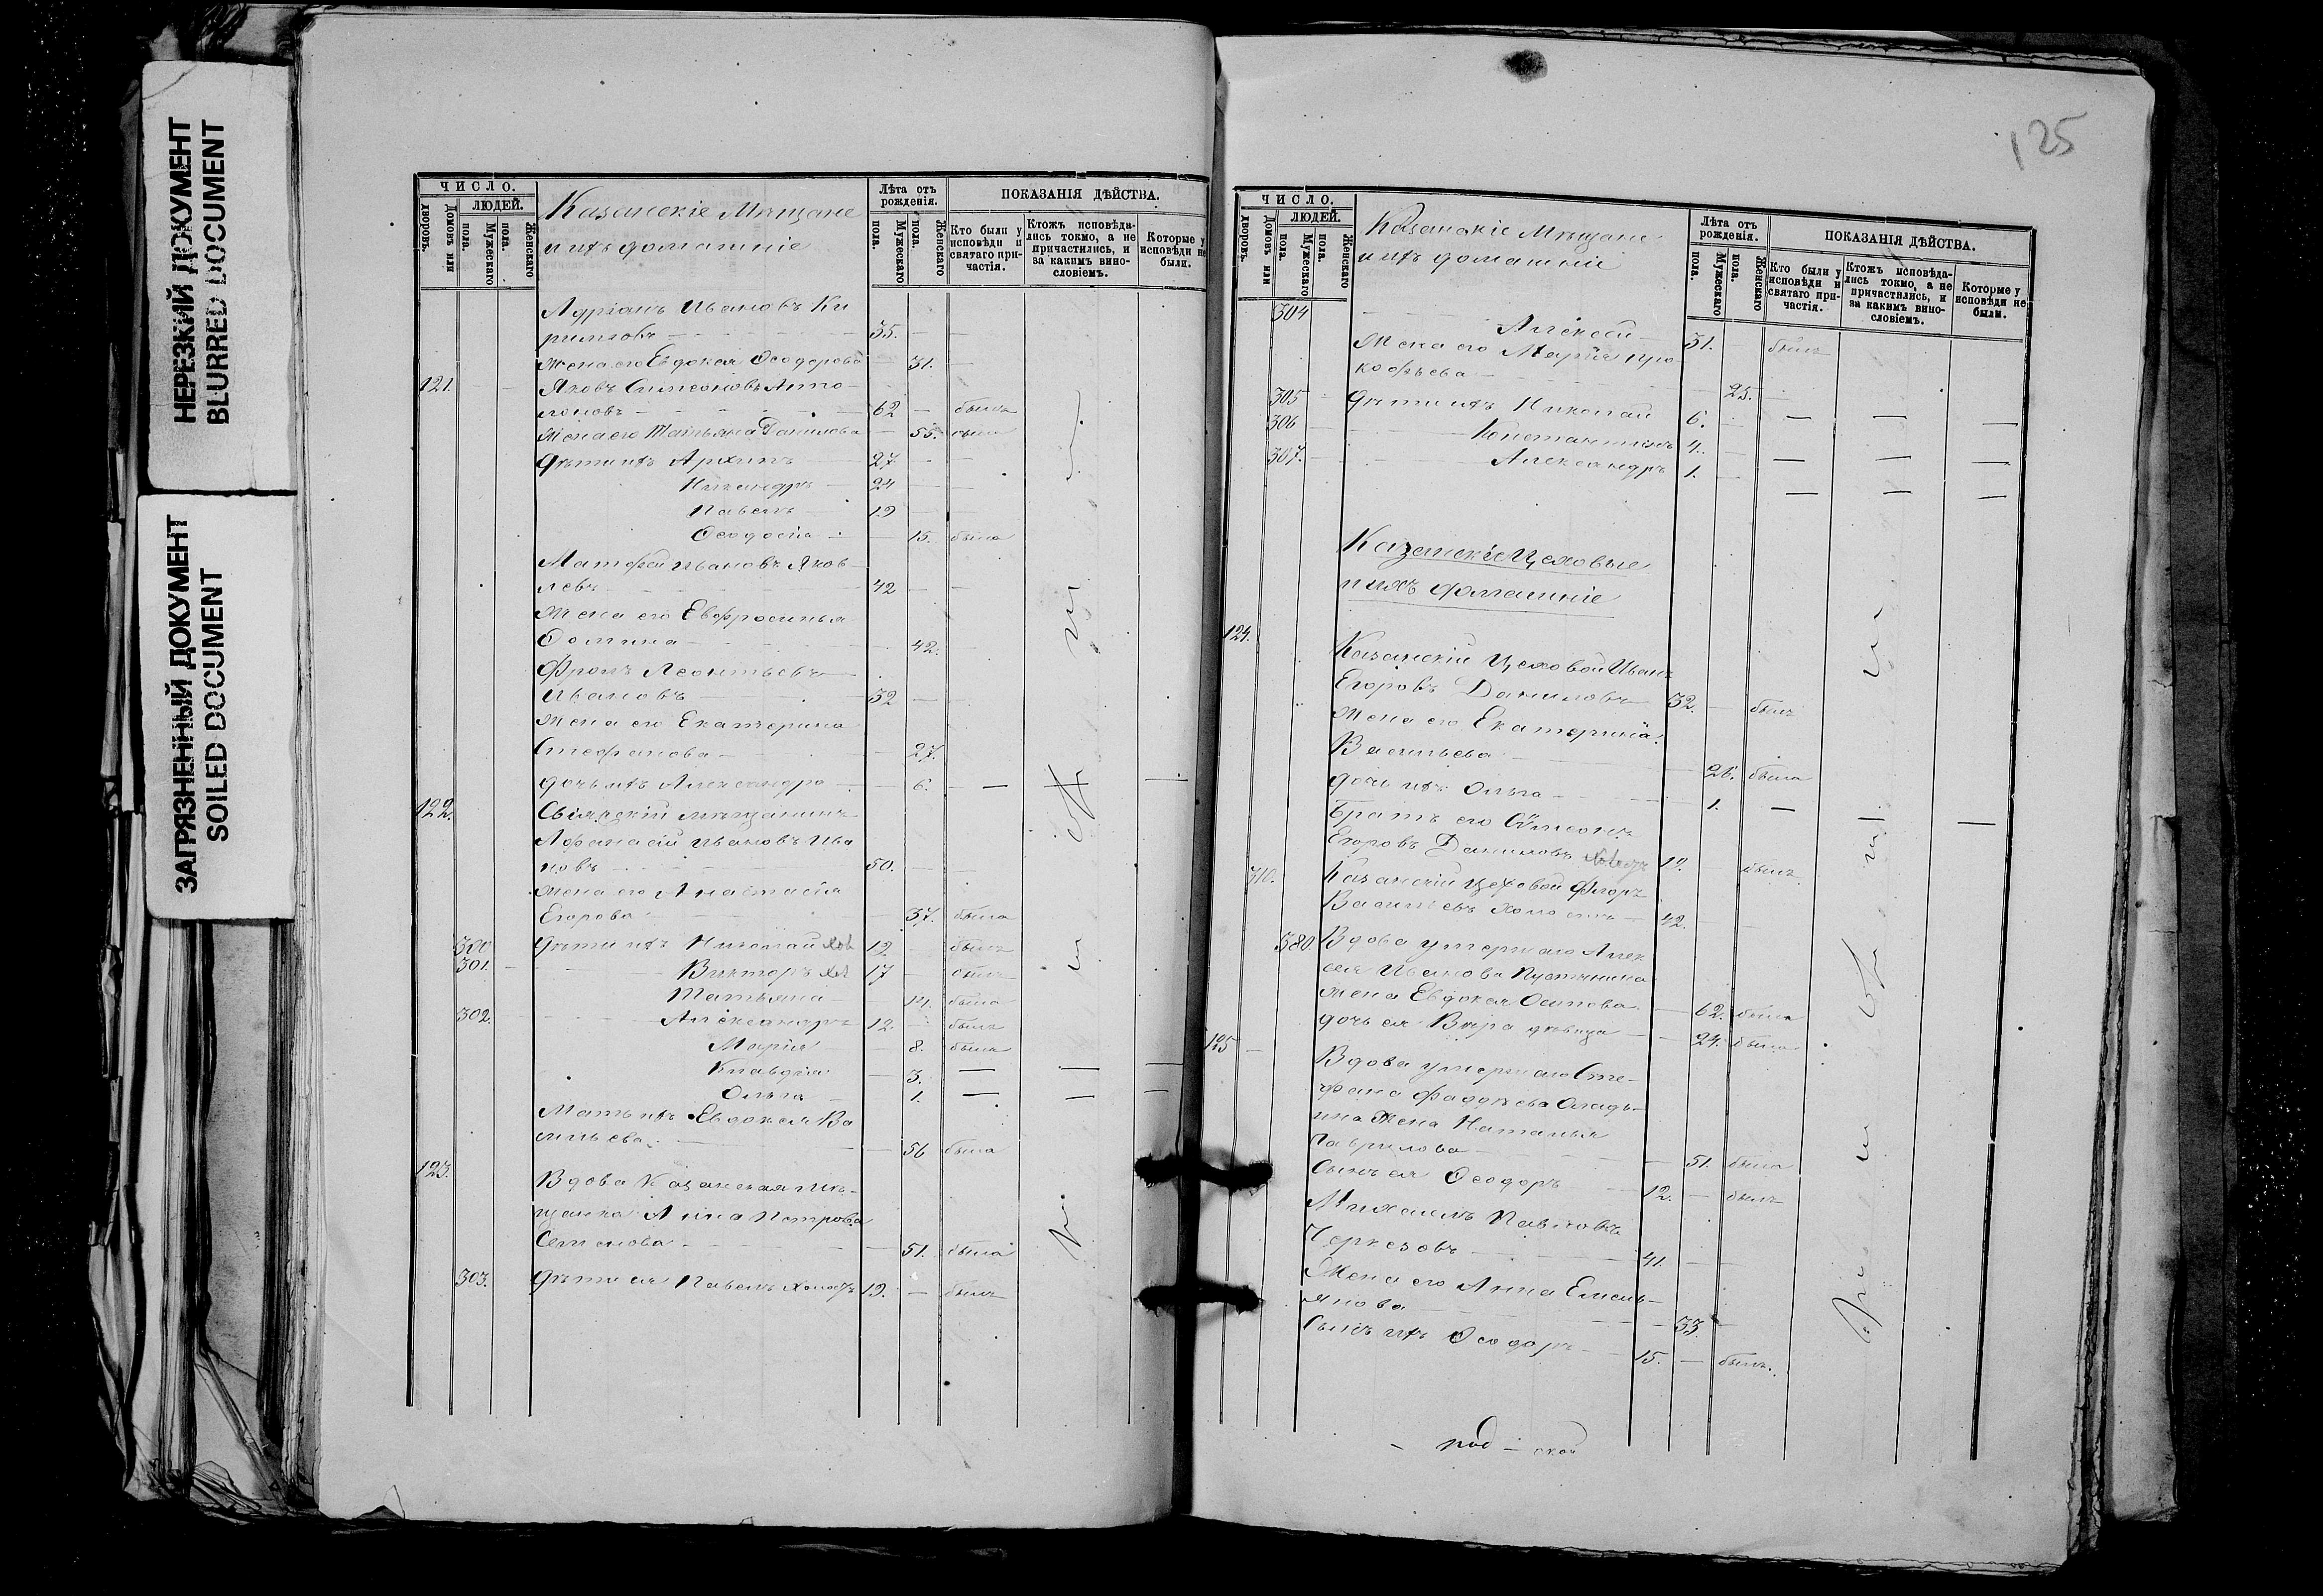 НЕРЕЗКИЙ ДОКУМЕНТ
BLURRED DOCUMENT
ЗАГРЯЗНЕННЫЙ ДОКУМЕНТ
SOILED DOCUMENT
ЧИСЛО.
ЛЮДЕЙ.
Домовъ или дворовъ.
Мужескаго пола.
Женскаго пола.
Казанскіе Мѣщане
и ихъ домашніе
Лѣта отъ рожденія.
Мужескаго пола.
Женскаго пола.
ПОКАЗАНІЯ ДѢЙСТВА.
Кто были у исповѣди и святаго причастія.
Ктожъ исповѣдались токмо, а не причастились, и за какимъ винословіемъ.
Которые у исповѣди не были.
Адріанъ Ивановъ Ки
риловъ — 35. — —
Жена его Евдокія Ѳеодорова 31. —
121. — — Яковъ Симеоновъ
62 — былъ
Жена его Татьяна Данилова — 55. была
Дѣти ихъ Архипъ 27 — —
Никандръ — 24 — —
Павелъ 19 — —
Ѳеодосія — — 15. была
Матфей Ивановъ Яков
левъ — 42 — —
Жена его Евфросинья
Ѳомина — — 42. —
Фролъ Леонтьевъ
Ивановъ — 32 — —
Жена его Екатерина
Стефанова — — 27.
Дочь ихъ Александра — — 6. — —
122. Свіяжскій мѣщанинъ
Афанасій Ивановъ Ива
новъ — 50. — —
Жена его Анастасія
Егорова — — 37. была
300 Дѣти ихъ Николай хол 19 былъ
301. — Викторъ хол 17 — былъ
Татьяна — 14. была
302. — Александръ 12. — былъ
Марія — 8. была
Клавдія — 3. — — —
Ольга — 1. — — —
Мать ихъ Евдокія Ва
сильева — — 56 была
123. Вдова Казанская мѣ-
щанка Анна Петрова
Семенова — — 51. была
303. Дѣти ея Павелъ холостъ 19. — былъ
125
ЧИСЛО.
ЛЮДЕЙ.
Домовъ или дворовъ.
Мужескаго пола.
Женскаго пола.
Казанскіе Мѣщане
и ихъ домашніи
Лѣта отъ рожденія.
Мужескаго пола.
Женскаго пола.
ПОКАЗАНІЯ ДѢЙСТВА.
Кто были у исповѣди и святаго причастія.
Ктожъ исповѣдались токмо, а не причастились, и за какимъ винословіемъ.
Которые у исповѣди не были.
304 — Алексѣй — 31. — былъ
Жена его Марія Про
кофьева — 25. —
305 — Дѣти ихъ Николай 6. — — — —
306 — Константинъ 4. — — — —
307. — Александръ 1. — — — —
Казанскіе Цеховые
и ихъ домашніе
124. Казанскій Цеховой Иванъ
Егоровъ Даниловъ 32. — былъ
Жена его Екатерина
Васильева — 26. была
Дочь ихъ Ольга — 1. — —
Братъ его Симеонъ
Егоровъ Даниловъ 19. — былъ
Казанскій цеховой Флоръ
Васильевъ — 42. — —
380 Вдова умершаго Алек
сѣя Иванова
жена Евдокія Осипова — 62. была
дочь ея Вѣра дѣвица — 24. была
125 — Вдова умершаго Сте-
фана Фаддѣева
жена Наталья
Гаврилова — — 51. была
Сынъ ея Ѳеодоръ — 12. — былъ
Михаилъ Павловъ
Черкезовъ — 41. — —
Жена его Анна Емель-
янова — — 33. —
Сынъ ихъ Ѳеодоръ — 15. — былъ.